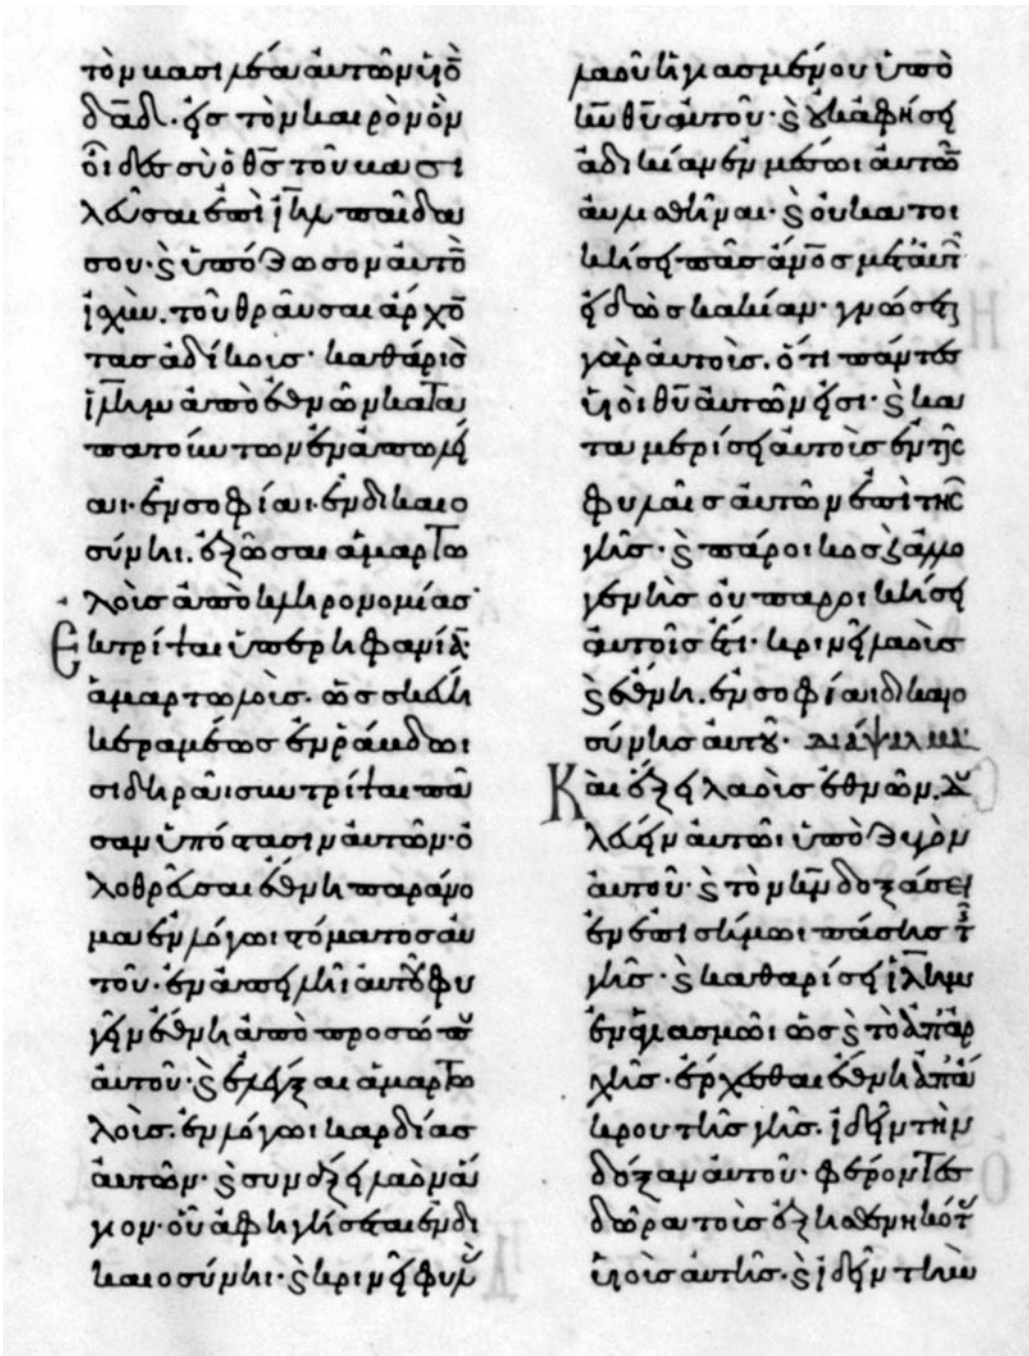 τὸν βασιλέα αὐτῶν υἱὸ̅
δα̅δ· εἰς τὸν καιρὸν ὃν
οἶδες σὺ ὁ θ̅ς τοῦ βασι
λεῦσαι ἐπὶ ι̅η̅λ παῖδα
σου· ϗ̀ ὑπόζωσον αὐτὸ̅
ἰσχὺν. τοῦ θραῦσαι ἄρχο̅
τας ἀδίκους· καθάρισο̅
ι̅λημ ἀπὸ ἐθνῶν κατα
πατούντων ἐν ἀπωλεί
αι· ἐν σοφίαι· ἐν δικαιο
σύνηι. ἐξῶσαι ἁμαρτω
λοὺς ἀπὸ κληρονομίας·
Εκτρίψαι ὑπερηφανία̅
ἁμαρτωλοὺς. ὡς σκεύη
κεραμέως ἐν ῥάβδωι
σιδηρᾶι συντρίψαι πᾶ
σαν ὑπόστασιν αὐτῶν· ὀ
λοθρεῦσαι ἔθνη παράνο
μα ἐν λόγωι στόματος αὐ
τοῦ· ἐν ἀπειλῆι αὐτοῦ φυ
γεῖν ἔθνη ἀπὸ προσώπου
αὐτοῦ· ϗ̀ ἐλέγξαι ἁμαρτω
λοὺς· ἐν λόγωι καρδίας
αὐτῶν· ϗ̀ συνάξει λαὸν ἅ
γιον· οὗ ἀφηγήσεται ἐν δι
καιοσύνηι· ϗ̀ κρινεῖ φυλὰς
λαοῦ ἡγιασμένου ὑπὸ
κ̅υ θ̅υ αὐτοῦ· ϗ̀ οὐκ ἀφήσει
ἀδικίαν ἐν μέσωι αὐτῶ̅
αὐλισθῆναι· ϗ̀ οὐ κατοι
κήσει πᾶς α̅ν̅ο̅ς μετ᾽ αὐτῶν
εἰδὼς κακίαν· γνώσεται
γὰρ αὐτοὺς. ὅτι πάντες
υἱοὶ θ̅υ αὐτῶν εἰσι· ϗ̀ κα
ταμερίσει αὐτοὺς ἐν ταῖς
φυλαῖς αὐτῶν ἐπὶ τῆς
γῆς· ϗ̀ πάροικος ϗ̀ ἀλλο
γενὴς οὐ παροικήσει
αὐτοῖς ἔτι· κρινεῖ λαοὺς
ϗ̀ ἔθνη. ἐν σοφίαι δικαιο
σύνης αὐτοῦ· διάψαλμα
Καὶ ἕξει λαοὺς ἐθνῶν. δου
λεύειν αὐτῶι ὑπὸ ζυγὸν
αὐτοῦ· ϗ̀ τὸν κ̅ν δοξάσει
ἐν ἐπισήμωι πάσης τῆς
γῆς· ϗ̀ καθαρίσει ι̅λημ
ἐν ἁγιασμῶι ὡς ϗ̀ τὸ ἀπ᾽ ἀρ
χῆς· ἔρχεσθαι ἔθνη ἀπ᾽ ἄ
κρου τῆς γῆς. ἰδεῖν τὴν
δόξαν αὐτοῦ· φέροντες
δῶρα τοὺς ἐξησθενηκότας
υἱοὺς αὐτῆς· ϗ̀ ἰδεῖν τὴν